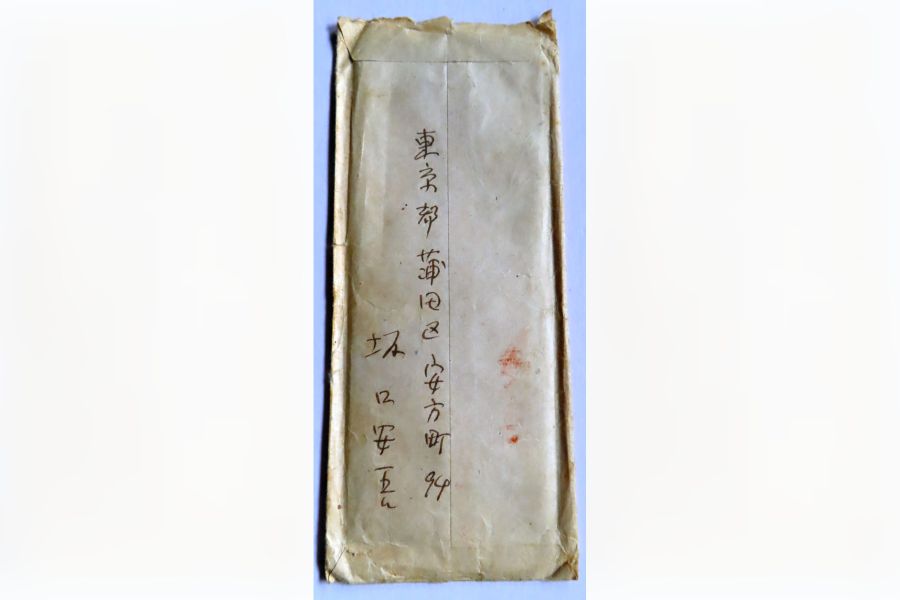 東京都蒲田区安方町94
坂口安吾